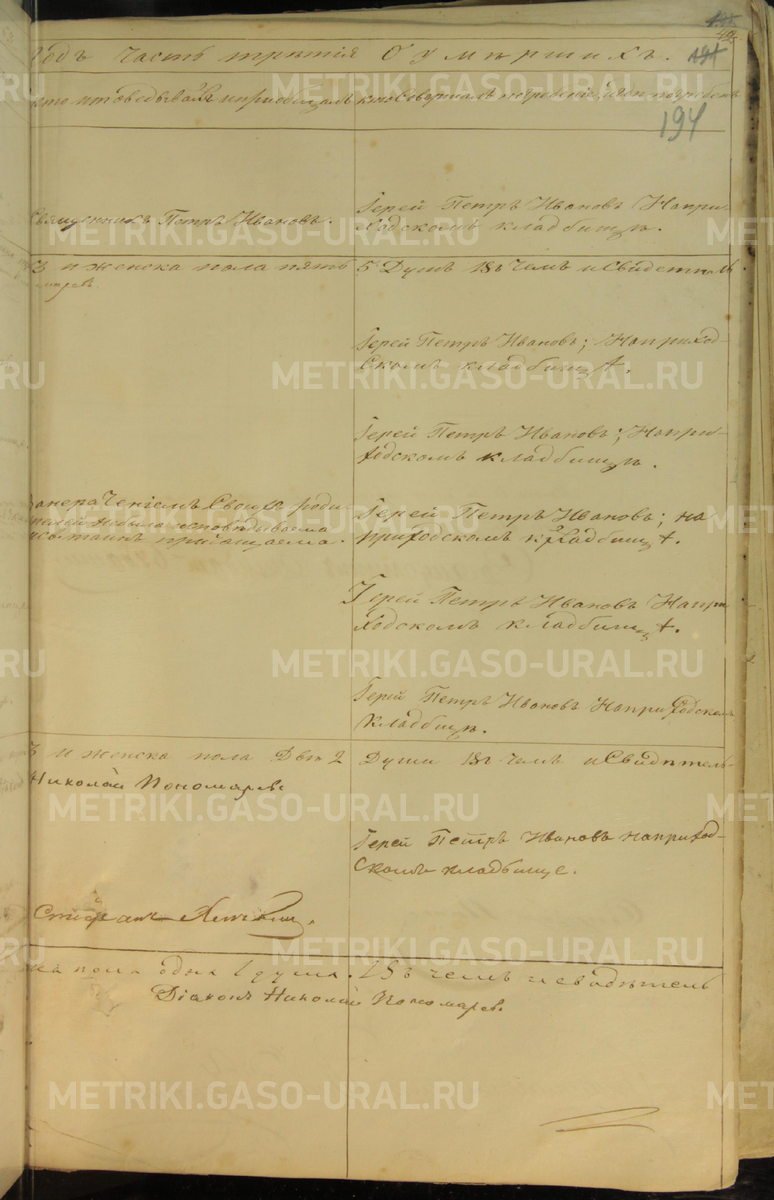 годъ Часть третія О умершихъ.
194
кто исповѣдывалъ и пріобщалъ
кто совершалъ погребеніе и гдѣ погребенъ
Священникъ Петръ Ивановъ.
Іерей Петръ Ивановъ На при-
ходскомъ кладбищѣ.
3 и женска пола пять
5 Душъ въ Чемъ и Свидетель
Іерей Петръ Ивановъ; На приход-
скомъ кладбищѣ.
Іерей Петръ Ивановъ; На при-
ходскомъ кладбищѣ.
За нераченіемъ Своихъ роди-
телей не была исповѣдываема
и Св: таинъ пріобщаема.
Іерей Петръ Ивановъ; на
приходскомъ кладбищѣ.
Іерей Петръ Ивановъ На при-
ходскомъ кладбищѣ.
Іерей Петръ Ивановъ На приходскомъ
кладбищѣ.
3 и женска пола Двѣ 2
Души въ чемъ и Свидѣтель-
Николай Пономаревъ
Іерей Петръ Ивановъ на приход-
скомъ кладбище.
Стефанъ
пола одна 1 душа. Въ чемъ и свидѣтель
Діаконъ Николай Пономаревъ
METRIKI.GASO-URAL.RU